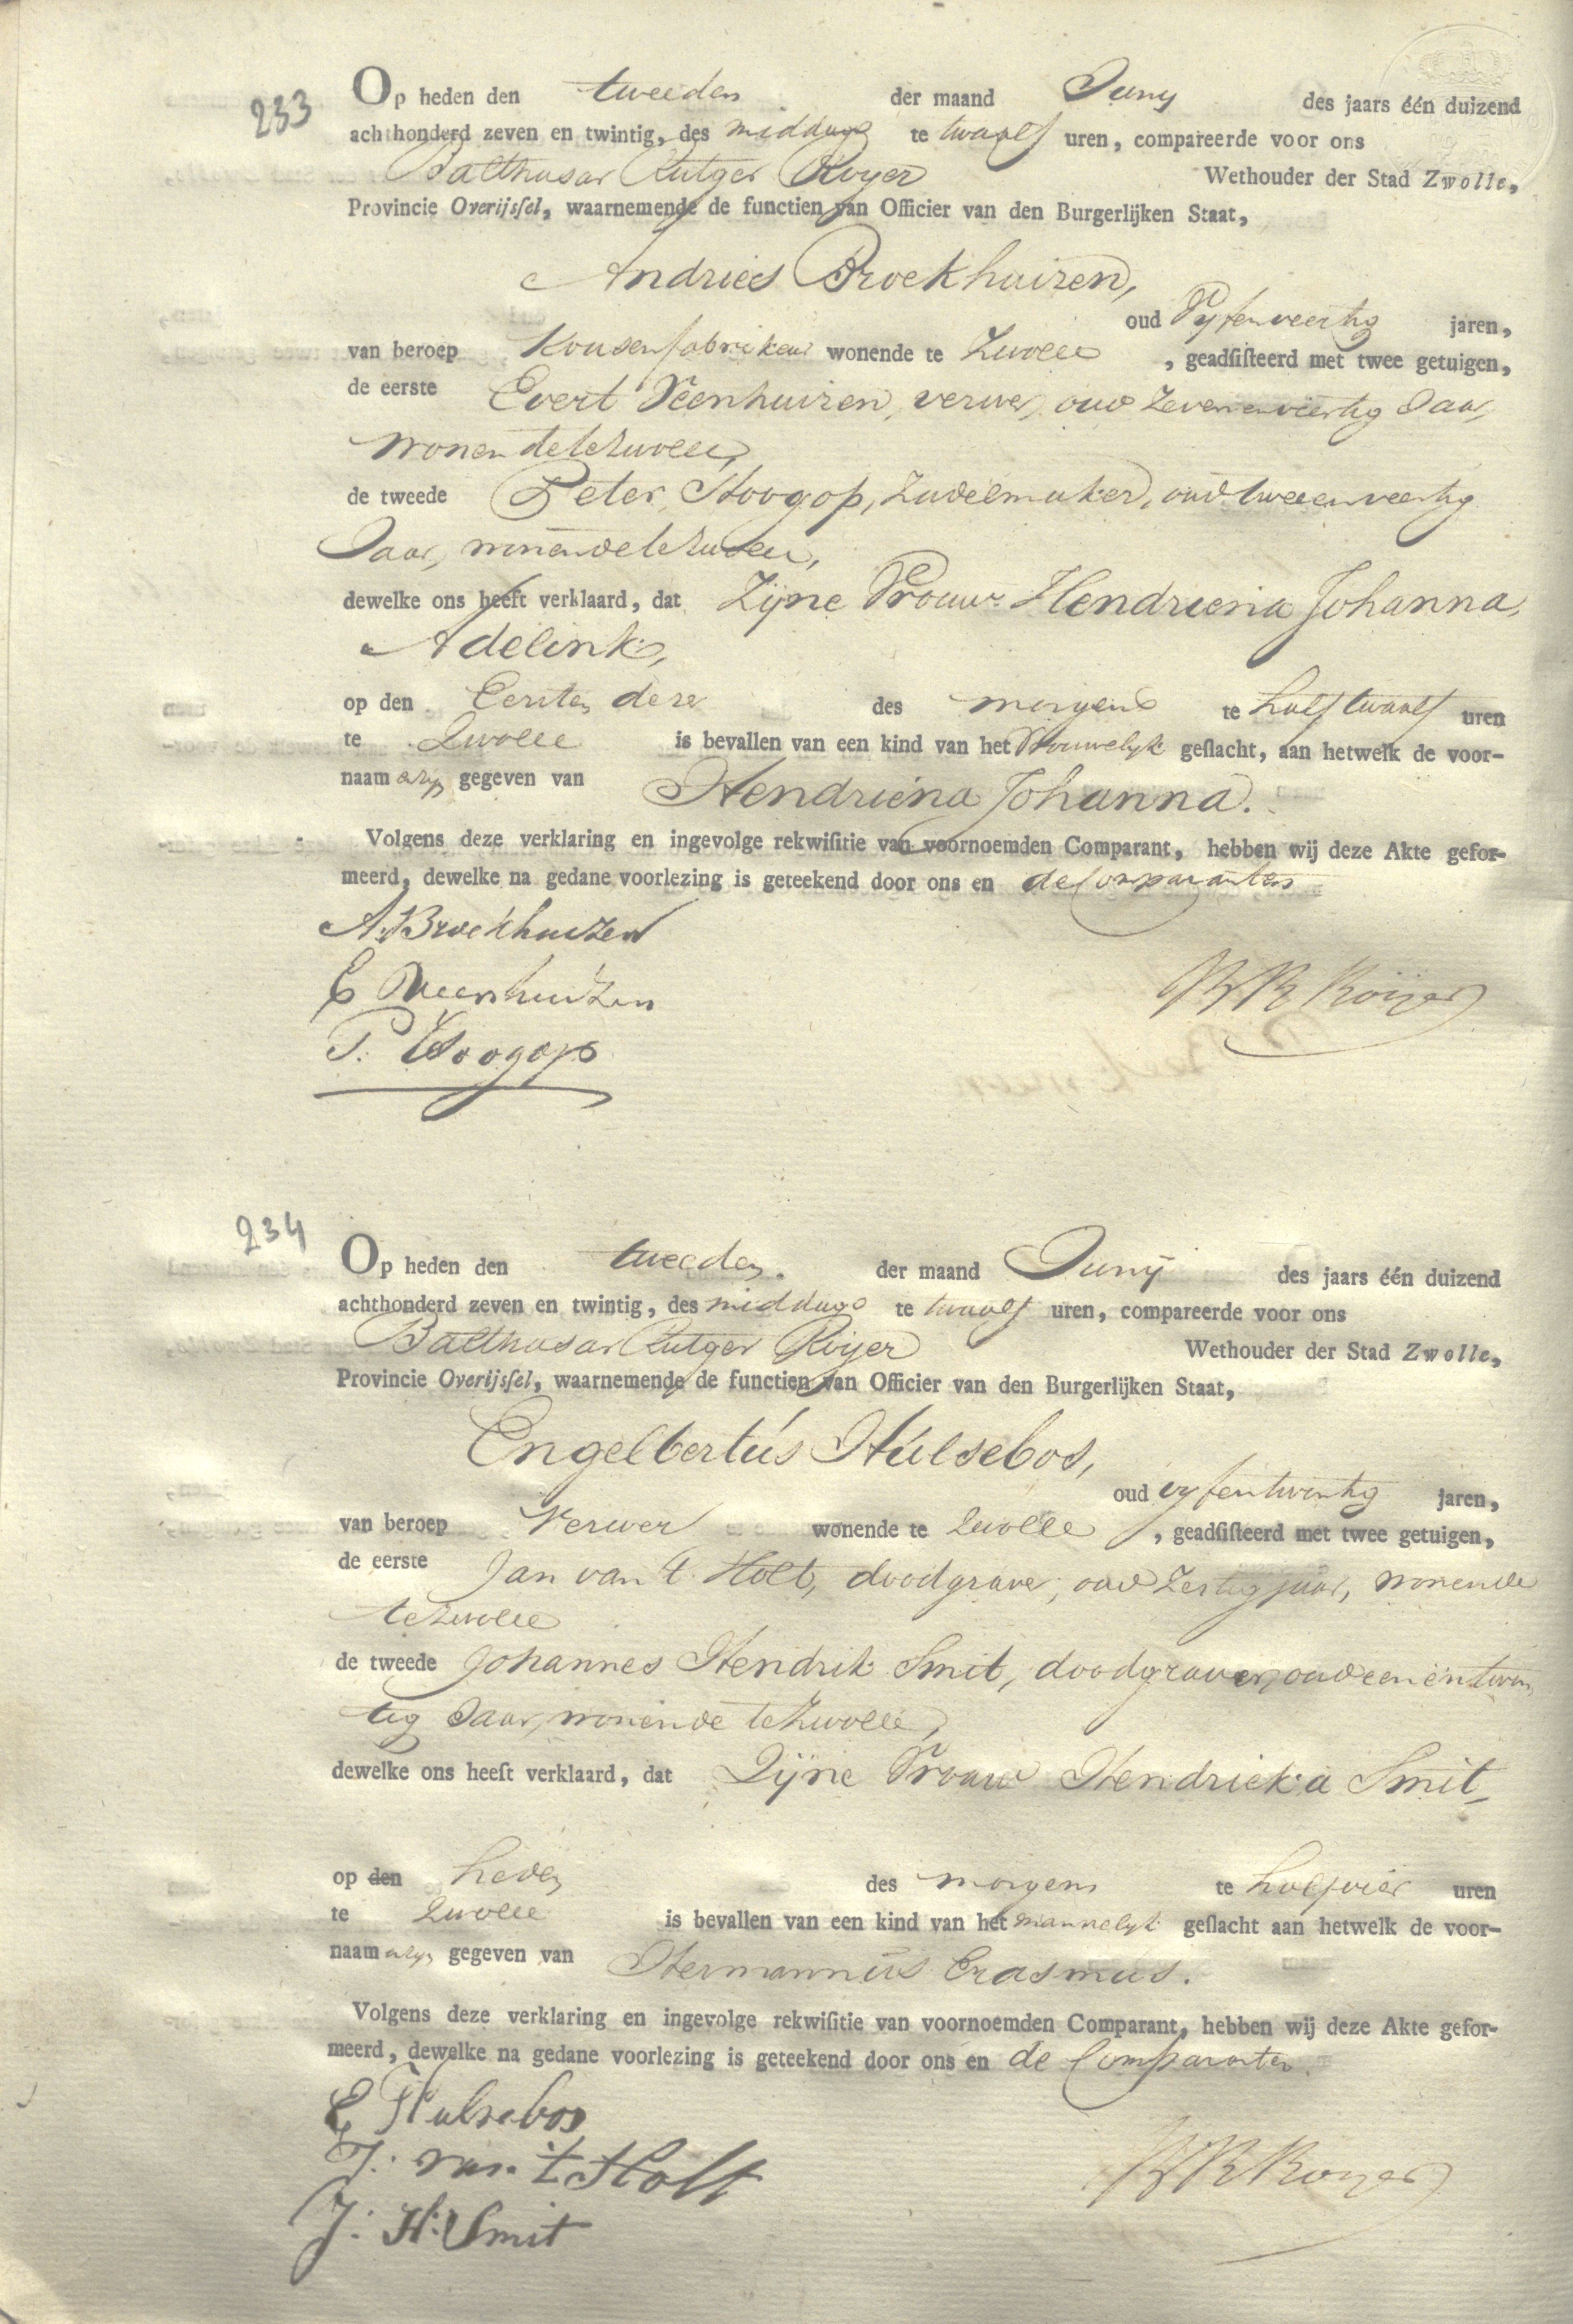 233
Op heden den tweeden der maand Juny des jaars één duizend
achthonderd zeven en twintig, des middags te twaalf uren, compareerde voor ons
Balthasar Rutger Royer Wethouder der Stad Zwolle,
Provincie Overijsſel, waarnemende de functien van Officier van den Burgerlijken Staat,
Andries Broekhuizen,
oud Vyfenveertig jaren,
van beroep Kousenfabrikeur wonende te Zwolle, geadſiſteerd met twee getuigen,
de eerste Evert Veenhuizen, verwer, oud Zevenenveertig Jaar,
wonende te Zwolle,
de tweede Peter Hoogop, Zadelmaker, oud tweeenveertig
Jaar, wonende te Zwolle,
dewelke ons heeft verklaard, dat Zijne Vrouw Hendriena Johanna
Adelink,
op den Eersten dezer des morgens te half twaalf uren
te Zwolle is bevallen van een kind van het Vrouwelyk geſlacht, aan hetwelk de voor-
naam is gegeven van Hendriena Johanna.
Volgens deze verklaring en ingevolge rekwiſitie van voornoemden Comparant, hebben wij deze Akte gefor-
meerd, dewelke na gedane voorlezing is geteekend door ons en de Comparanten
A. Broekhuizen
E Veenhuizen
B R Roijer
P. Hoogop
234
Op heden den tweeden. der maand Junij des jaars één duizend
achthonderd zeven en twintig, des middags te twaalf uren, compareerde voor ons
Balthasar Rutger Roijer Wethouder der Stad Zwolle,
Provincie Overijsſel, waarnemende de functien van Officier van den Burgerlijken Staat,
Engelbertus Hulsebos,
oud vyfentwintig jaren,
van beroep Verwer wonende te Zwolle, geadſiſteerd met twee getuigen,
de eerste Jan van t Holt, doodgraver, oud Zestig jaar, wonende
te Zwolle
de tweede Johannes Hendrik Smit, doodgraver, oud eenentwin
tig Jaar, wonende te Zwolle,
dewelke ons heeft verklaard, dat Zijne Vrouw Hendrieka Smit,
op den heden des morgens te half vier uren
te Zwolle is bevallen van een kind van het mannelyk geſlacht aan hetwelk de voor-
naam gegeven van Hermannus Erasmus.
Volgens deze verklaring en ingevolge rekwiſitie van voornoemden Comparant, hebben wij deze Akte gefor-
meerd, dewelke na gedane voorlezing is geteekend door ons en de Comparanten.
E Hulsebos
J. van 't Holt
B R Roijer
J. H. Smit